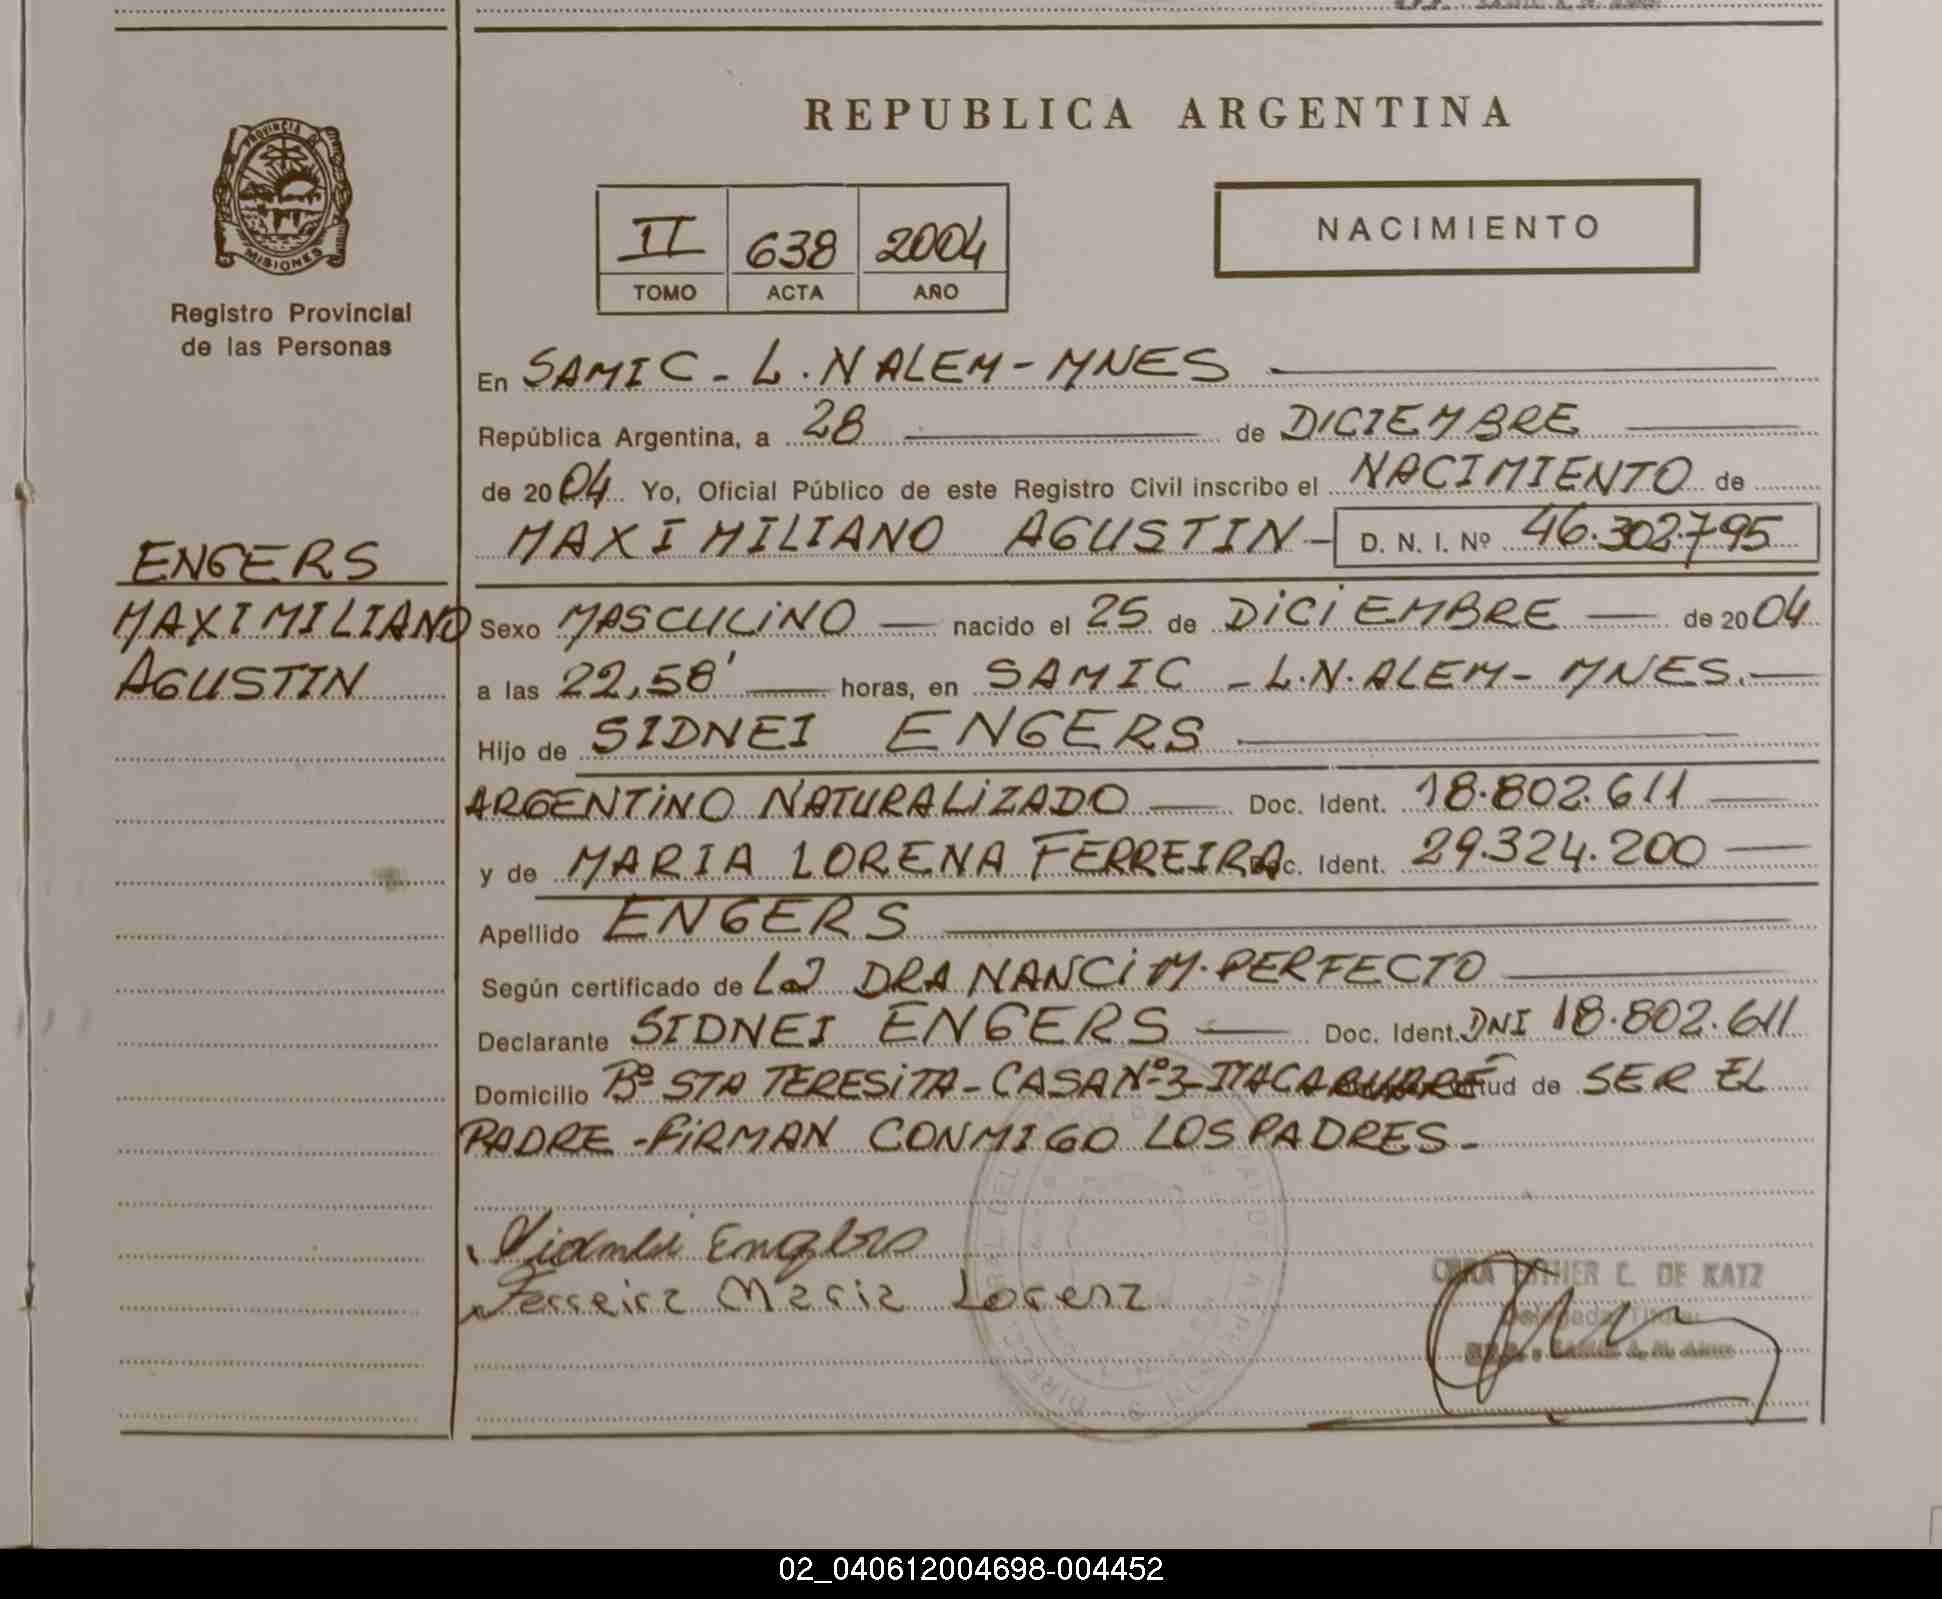 REPUBLICA ARGENTINA
PROVINCIA DE
MISIONES
Registro Provincial
de las Personas
II 638 2004
TOMO ACTA AÑO
NACIMIENTO
En SAMIC - L. N ALEM - MNES
República Argentina, a 28 de DICIEMBRE
de 2004 Yo, Oficial Público de este Registro Civil inscribo el NACIMIENTO de
MAXIMILIANO AGUSTIN - D. N. I. Nº 46.302.795
ENGERS
MAXIMILIANO
AGUSTIN
Sexo MASCULINO nacido el 25 de DICIEMBRE de 2004
a las 22,58' horas, en SAMIC - L.N. ALEM - MNES.
Hijo de SIDNEI ENGERS
ARGENTINO NATURALIZADO Doc. Ident. 18.802.611
y de MARIA LORENA FERREIRA Doc. Ident. 29.324.200
Apellido ENGERS
Según certificado de La DRA NANCI M. PERFECTO
Declarante SIDNEI ENGERS Doc. Ident. DNI 18.802.611
Domicilio Bº STA TERESITA - CASA Nº 3 - ITACARUARÉ de SER EL
PADRE - FIRMAN CONMIGO LOS PADRES -
Sidnei Engers
Ferreira Maria Lorena
ESTHER C. DE KATZ
Delegada Titular
02_040612004698-004452